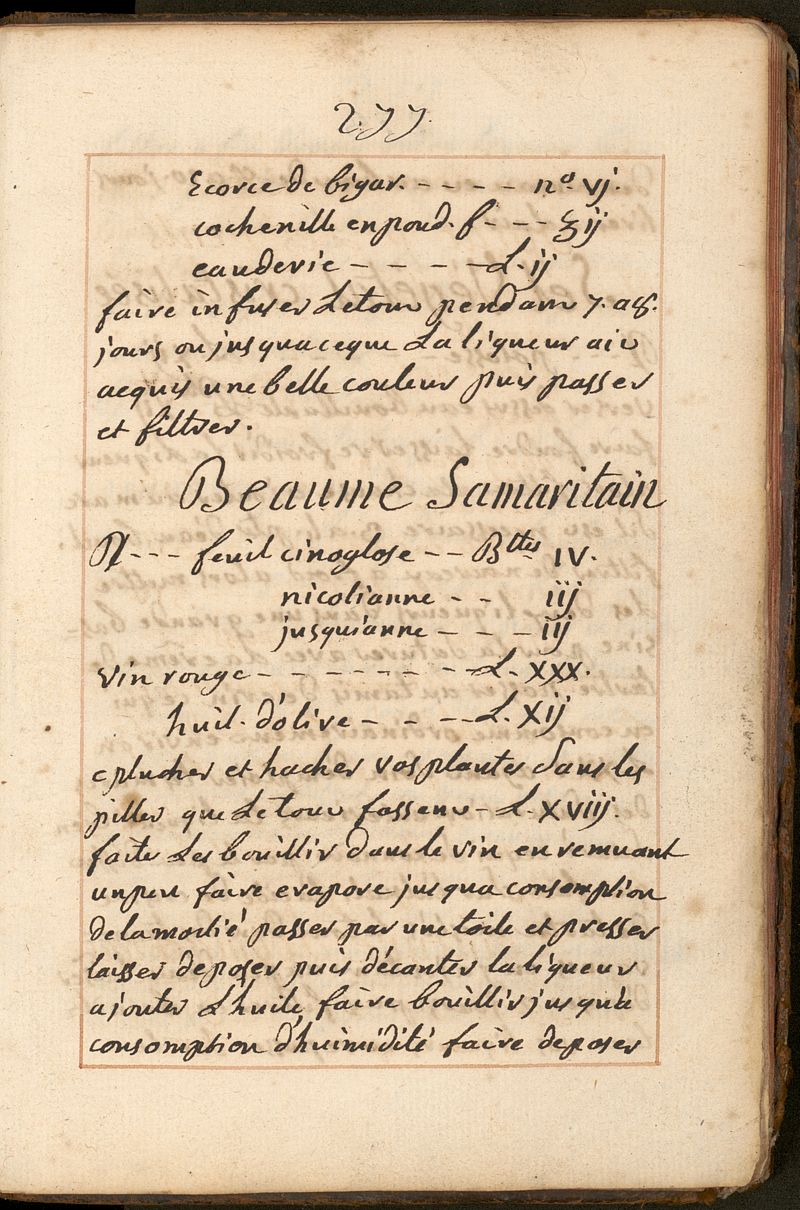 277.
Ecorce de bigar. - - - - nº. vj.
cochenille en poud. f - - - ʒij
eaudevie - - - - - L. ij
faire infuser Letout pendant 7. a 8.
jours ou jusquaceque La liqueur ait
acquis une belle couleur puis passer
et filtrer.
Beaume Samaritain
℞ - - - feuil cinoglose - - Bttes IV.
nicotianne - - iij
jusquianne - - - iij
vin rouge - - - - - - - - L. xxx.
huil. d'olive - - - - L. xij
eplucher et hacher vos plantes dans les
piller que Letout fassent - L. xviij.
faite Les bouillir dans le vin en remuant
unpeu faire evapore jusqua consomption
delamoitié passer par une toile et presser
laisser deposer puis décanter la liqueur
ajouter L'huile faire bouillir jusqu'a
consomption d'huimidité faire deposer